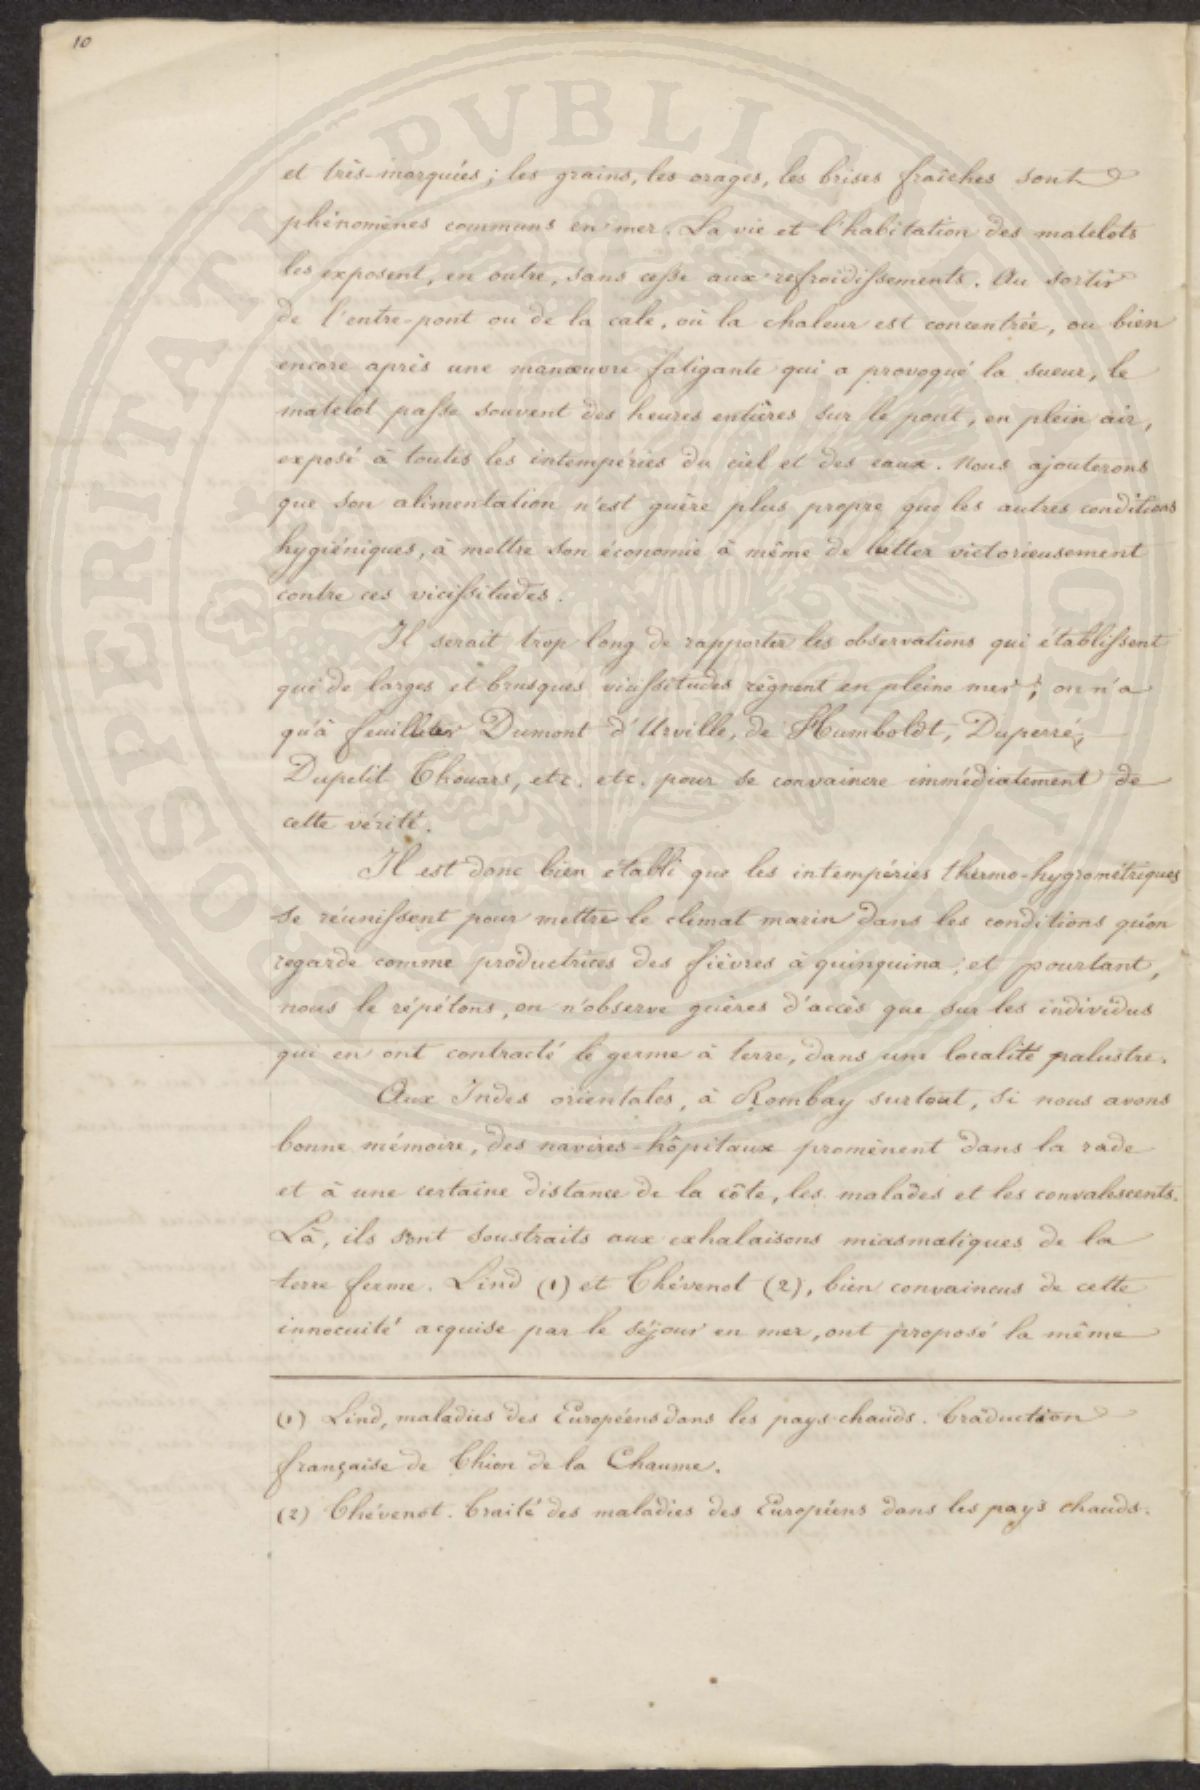 10
et très-marquées ; les grains, les orages, les brises fraîches sont
phénomènes communs en mer. La vie et l'habitation des matelots
les exposent, en outre, sans cesse aux refroidissements. Au sortir
de l'entre-pont ou de la cale, où la chaleur est concentrée, ou bien
encore après une manœuvre fatigante qui a provoqué la sueur, le
matelot passe souvent des heures entières sur le pont, en plein air,
exposé à toutes les intempéries du ciel et des eaux. Nous ajouterons
que son alimentation n'est guère plus propre que les autres conditions
hygiéniques, à mettre son économie à même de lutter victorieusement
contre ces vicissitudes.
Il serait trop long de rapporter les observations qui établissent
que de larges et brusques vicissitudes règnent en pleine mer ; on n'a
qu'à feuilleter Dumont d'Urville, de Humboldt, Duperré,
Dupetit Thouars, etc. etc. pour se convaincre immédiatement de
cette vérité.
Il est donc bien établi que les intempéries thermo-hygrométriques
se réunissent pour mettre le climat marin dans les conditions qu'on
regarde comme productrices des fièvres à quinquina ; et pourtant,
nous le répétons, on n'observe guères d'accès que sur les individus
qui en ont contracté le germe à terre, dans une localité palustre.
Aux Indes orientales, à Bombay surtout, si nous avons
bonne mémoire, des navires-hôpitaux promènent dans la rade
et à une certaine distance de la côte, les malades et les convalescents.
Là, ils sont soustraits aux exhalaisons miasmatiques de la
terre ferme. Lind (1) et Thévenot (2), bien convaincus de cette
innocuité acquise par le séjour en mer, ont proposé la même
(1) Lind, maladies des Européens dans les pays chauds. Traduction
française de Thion de la Chaume.
(2) Thévenot. Traité des maladies des Européens dans les pays chauds.
PROSPERITATI PUBLICAE AUGENDAE